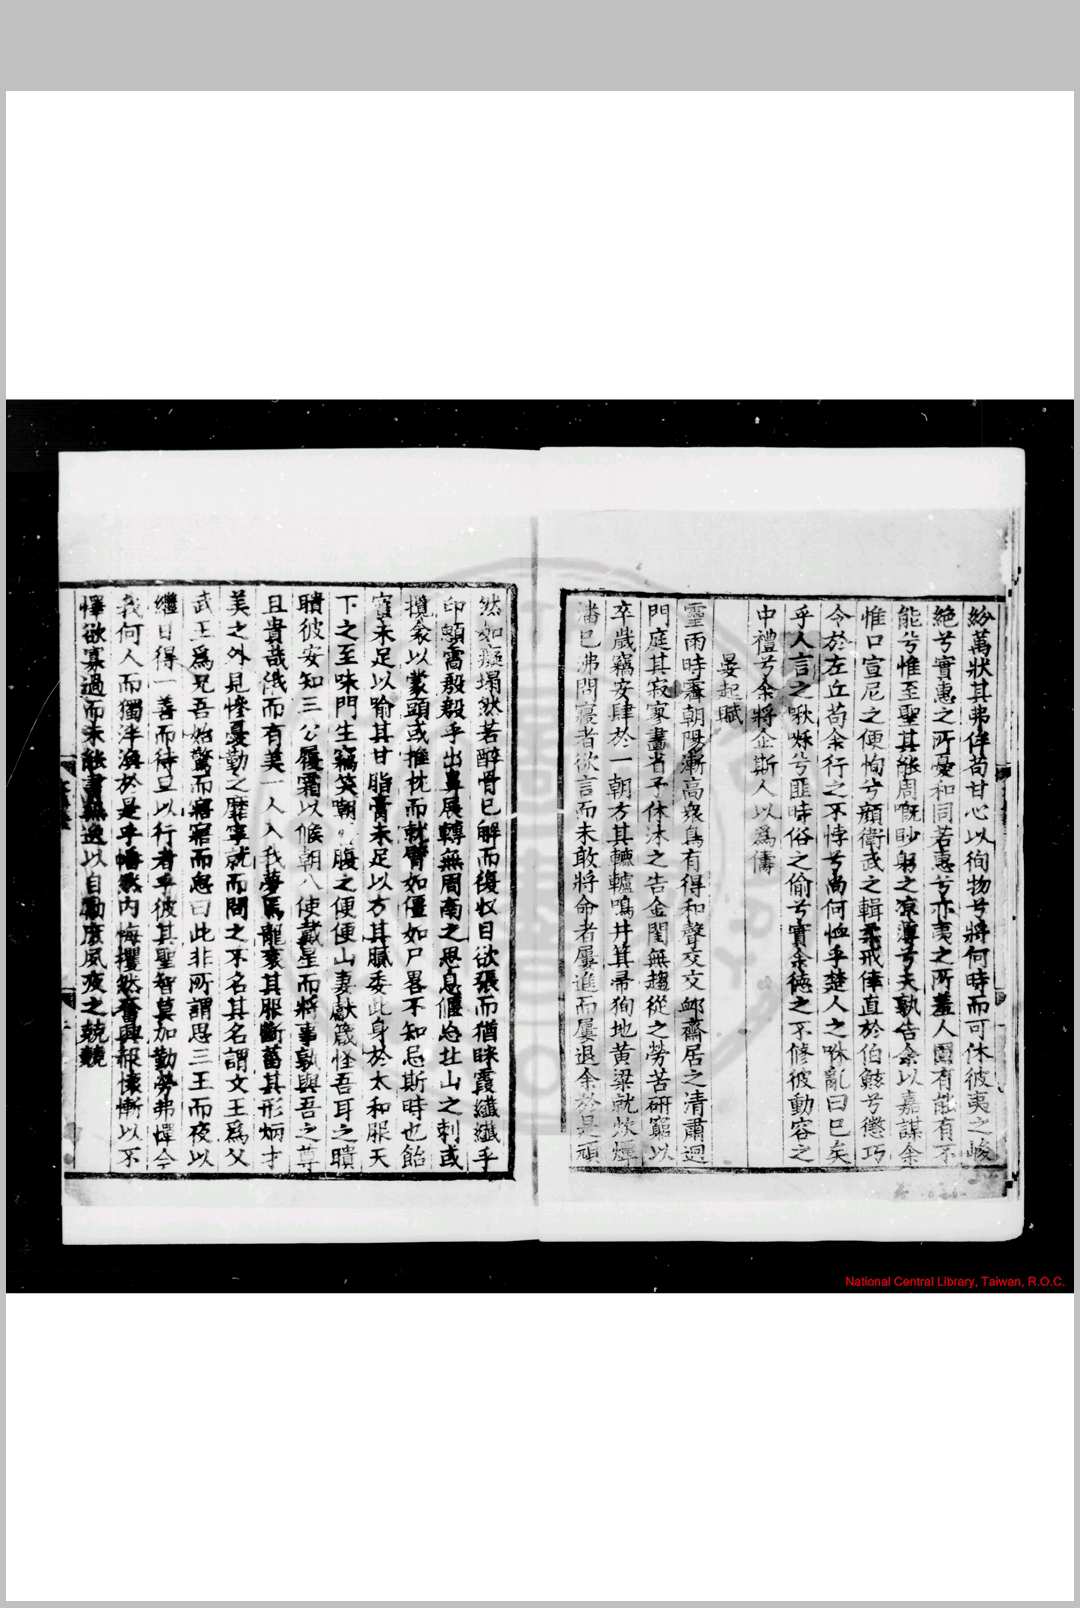 紛萬狀其弗侔苟甘心以徇物兮將何時而可休彼夷之峻
絶兮實惠之所憂和同若惠兮亦夷之所羞人固有能有不
能兮惟至聖其能周嘅眇躬之凉薄兮夫孰告余以嘉謀余
惟口宣尼之便恂兮顔衛武之輯柔戒倖直於伯鯀兮懲巧
令於左丘苟余行之不悖兮尚何恤乎楚人之咻亂曰已矣
乎人言之啾㗭兮匪時俗之偷兮實余德之不修彼動容之
中禮兮余將企斯人以為儔
晏起賦
靈雨時霽朝陽漸高衆鳥有得和聲交交邺齋居之清肅迥
門庭其寂寥畫省予休沐之告金閨無趨從之勞苦研窮以
卒歲竊安肆於一朝方其轆轤鳴井箕帚徇地黄粱就炊燂
潘已沸問寢者欲言而未敢將命者屢進而屢退余於是頑
然如癡塌然若醉骨已解而復収目欲張而猶眯霞纎纎乎
印顙霭殷殷乎出鼻展轉無周南之思息偃忘北山之刺或
攬衾以蒙頭或推枕而就臂如僵如尸畧不知忌斯時也飴
蜜未足以喻其甘脂膏未足以方其膩委此身於太和服天
下之至味門生竊笑嘲 腹之便便山妻獻箴怪吾耳之聵
聵彼安知三公履霜以候朝八使戴星而將事孰與吾之尊
且貴哉俄而有美一人入我夢焉龍衮其服斷菑其形炳才
美之外見慘憂勤之靡寧就而問之不名其名謂文王為父
武王爲兄吾始驚而寤寤而思曰此非所謂思三王而夜以
繼日得一善而待旦以行者乎彼其聖智莫加勤勞弗憚今
我何人而獨泮渙於是乎幡然内悔攫然奮興郝懐慚以不
懌欲寡過而未能書無逸以自勖庶夙夜之兢兢
National Central Library, Taiwan, R.O.C.